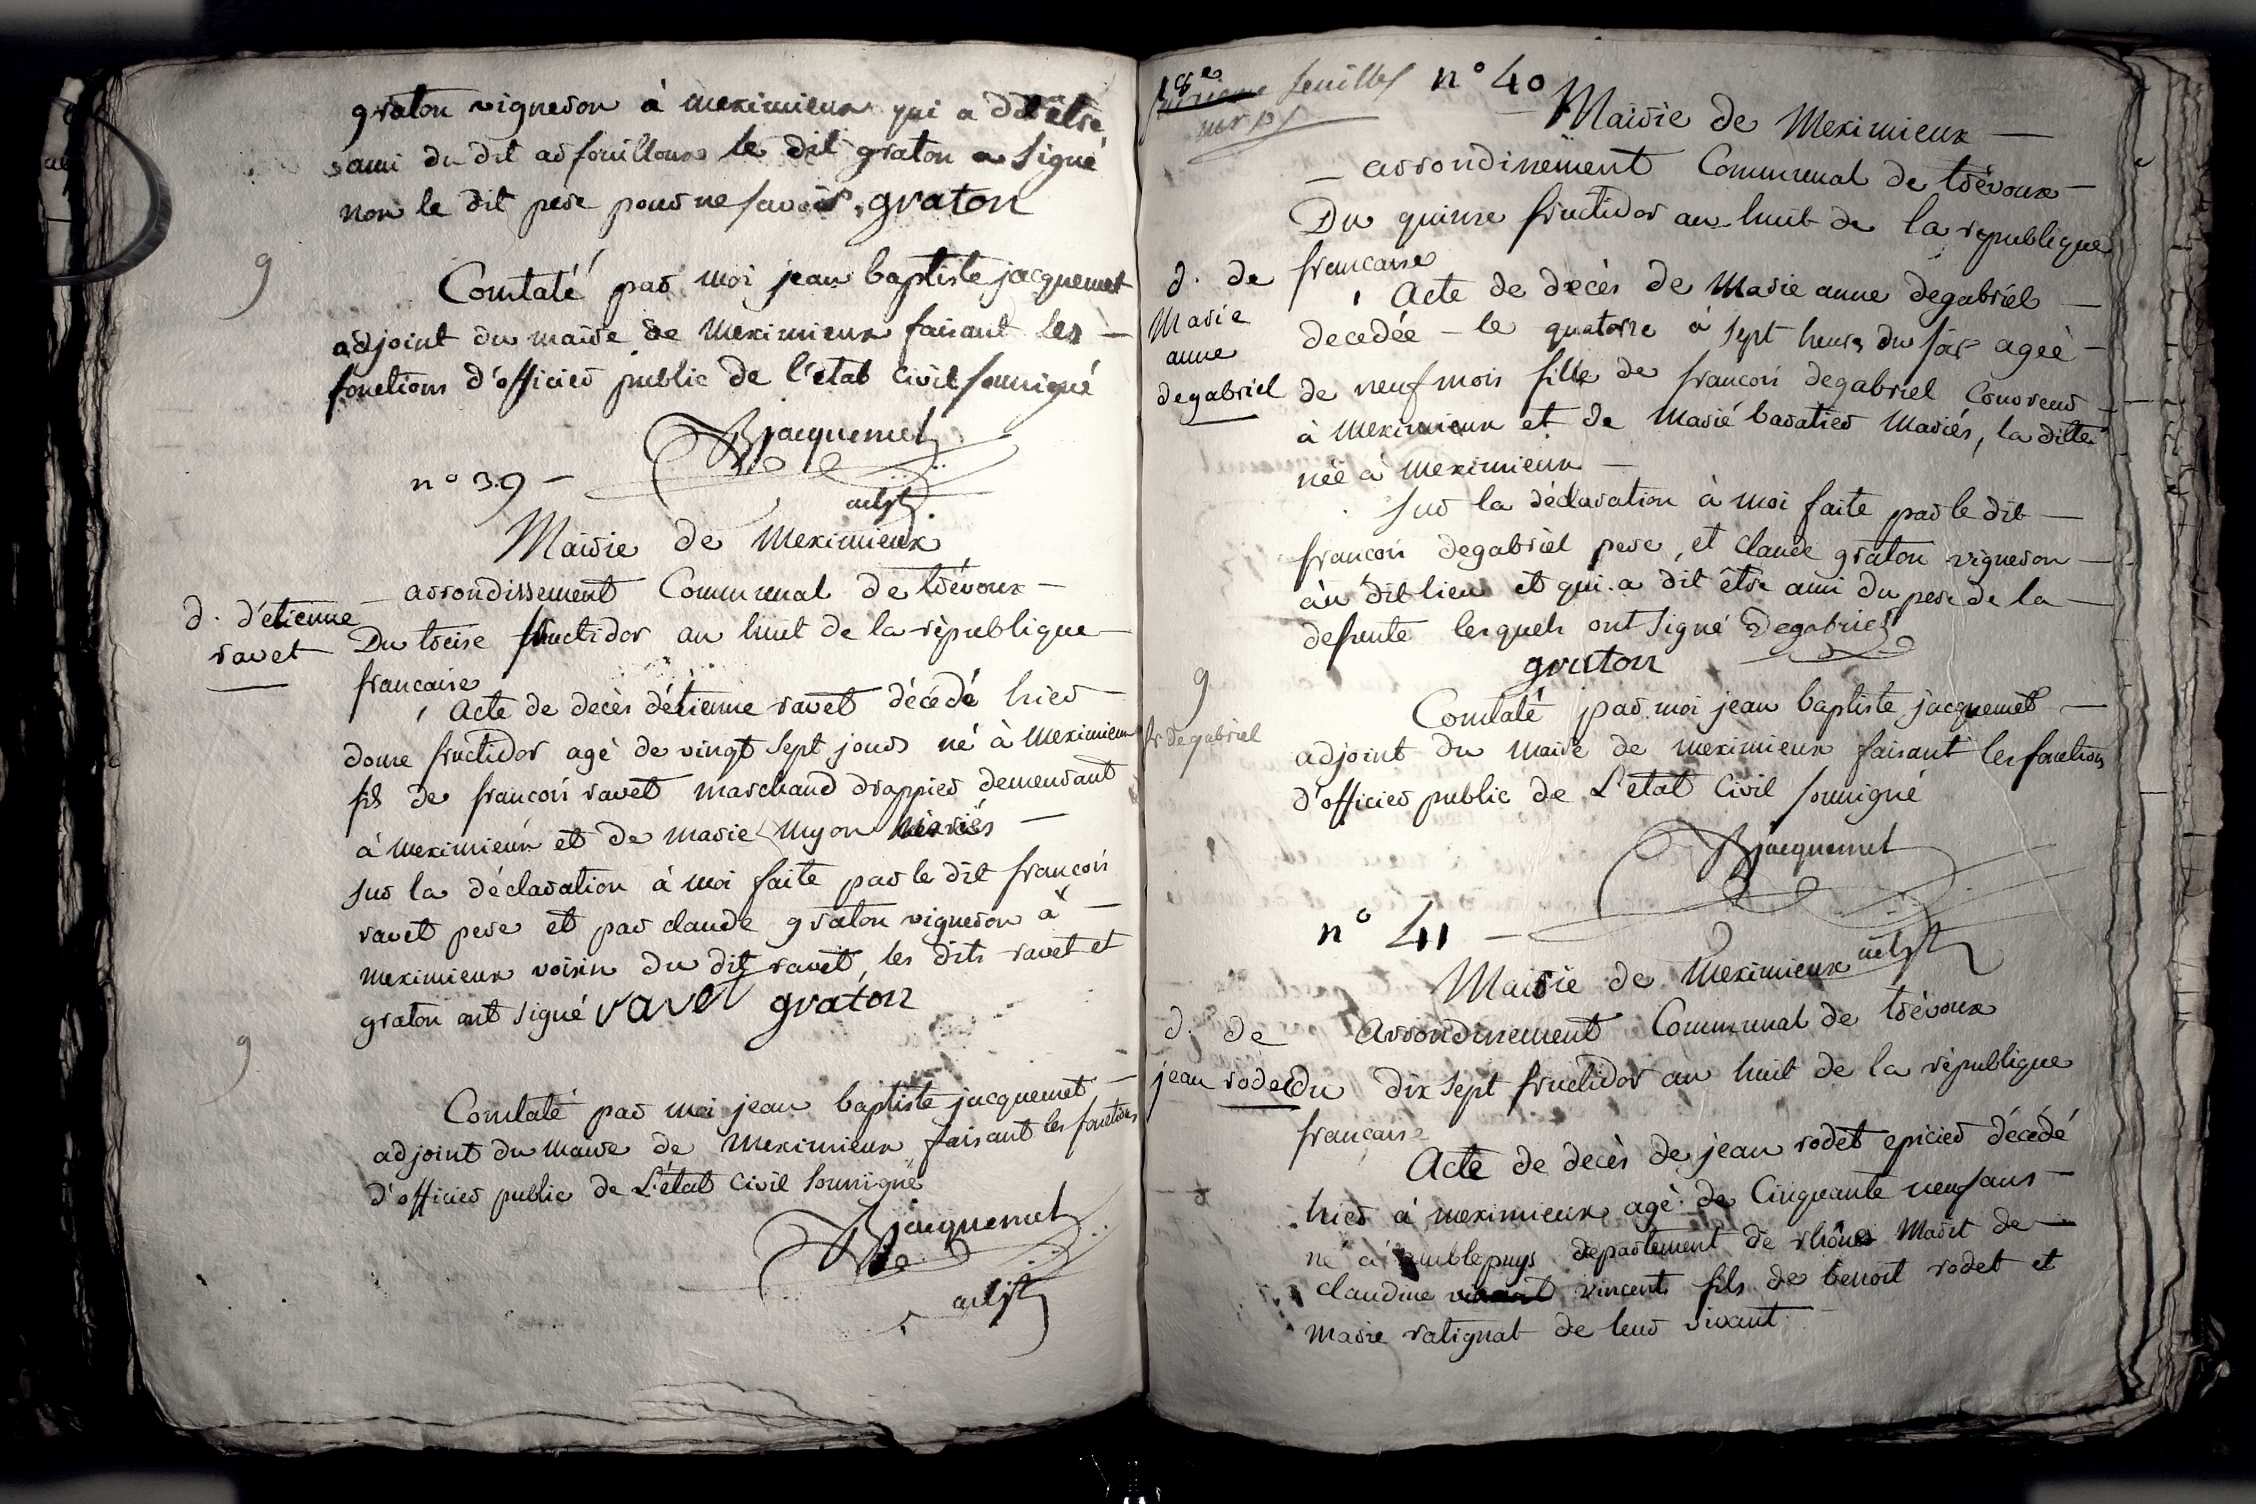 graton vigneron à meximieux qui a dit etre
ami du dit arfouilloux le dit graton a signé
non le dit pere pour ne savoir. graton
9
Constaté par moi jean baptiste jacquemet
adjoint du maire de meximieux faisant les
fonctions d'officier public de l'état civil soussigné
Bjacquemet
adjt
n° 39 —
Mairie de meximieux
arrondissement Communal de trévoux —
d. d'étienne
ravet
Du treise fructidor an huit de la république
francaise
Acte de decès détienne ravet décédé hier
douse fructidor agé de vingt sept jours né à meximieux
fils de francois ravet marchand drappier demeurant
à meximieux et de marie myon mariés —
sur la déclaration à moi faite par le dit francois
ravet pere et par claude graton vigneron à —
meximieux voisin du dit ravet, les dits ravet et
graton ont signé ravet graton
9
Constaté par moi jean baptiste jacquemet —
adjoint du maire de meximieux faisant les fonctions
d'officier public de L'état civil soussigné
Bjacquemet
adjt
18e feuillet
n° 40
Mairie de Meximieux —
— arrondissement Communal de trévoux —
Du quinse fructidor an huit de la republique
francaise
d. de
Marie
anne
degabriel
Acte de decès de Marie anne degabriel —
decedée — le quatorse à sept heures du soir ageé —
de neuf mois fille de francois degabriel Conoreur —
à meximieux et de Marié baratier Mariés, la ditte
néé à meximieux —
sur la déclaration à moi faite par le dit —
francois degabriel pere, et claude graton vigneron —
àu dit lieu et qui a dit être ami du pere de la —
defunte lesquels ont signé Degabriel
graton
9
fr degabriel
Constaté par moi jean baptiste jacquemet —
adjoint du maire de meximieux faisant les fonctions
d'officier public de L'état civil soussigné
Bjacquemet
adjt
n° 41 —
Mairie de Meximieux
d. de
jean rodet
Arrondissement Communal de trévoux
du dix sept fructidor an huit de la république
francaise
Acte de decès de jean rodet epicier décédé
hier à meximieux agé de Cinquante neuf ans —
né à amblepuys departement de rhône Marit de —
claudine vincent fils de benoit rodet et
marie ratignat de leur vivant. —